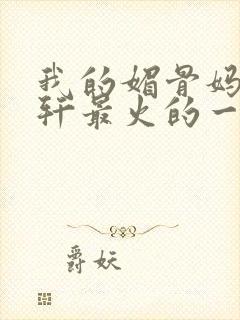 我的媚骨妈
轩最火的一
爵妖